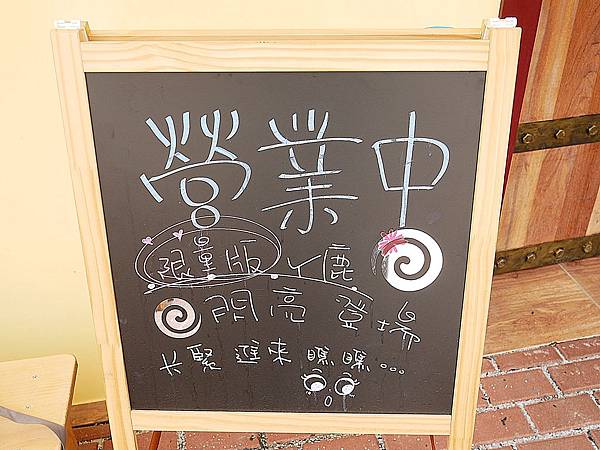 營業中
限量版ㄚ鹿
閃亮登場
卡緊進來瞧瞧...